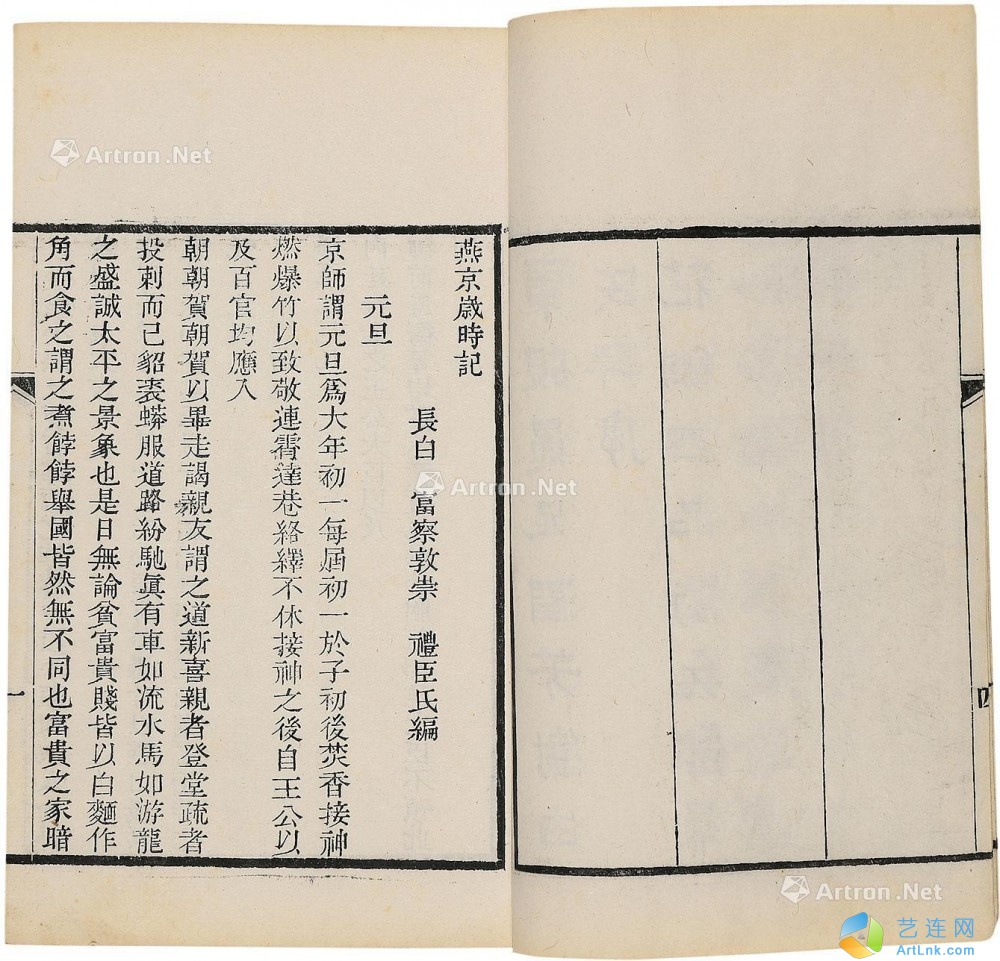 燕京歲時記
長白 富察敦崇 禮臣氏編
元旦
京師謂元旦爲大年初一每屆初一於子初後焚香接神
燃爆竹以致敬連霄達巷絡繹不休接神之後自王公以
及百官均應入
朝朝賀朝賀以畢走謁親友謂之道新喜親者登堂疏者
投刺而已貂裘蟒服道路紛馳眞有車如流水馬如游龍
之盛誠太平之景象也是日無論貧富貴賤皆以白麵作
角而食之謂之煮餑餑舉國皆然無不同也富貴之家暗
一
四
Artron.Net
Artron.Net
Artron.Net
艺连网
ArtLnk.com